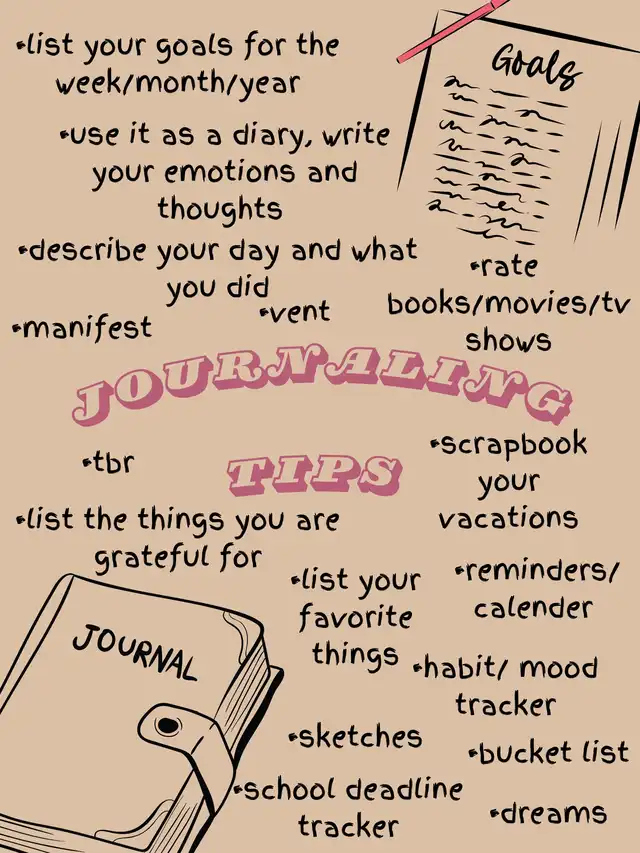 Goals
•list your goals for the
week/month/year
•use it as a diary, write
your emotions and
thoughts
•describe your day and what
you did
•rate
books/movies/tv
shows
•vent
•manifest
JOURNALING
TIPS
•tbr
•scrapbook
your
vacations
•list the things you are
grateful for
•list your
favorite
things
•reminders/
calender
JOURNAL
•habit/ mood
tracker
•sketches
•bucket list
•school deadline
tracker
•dreams